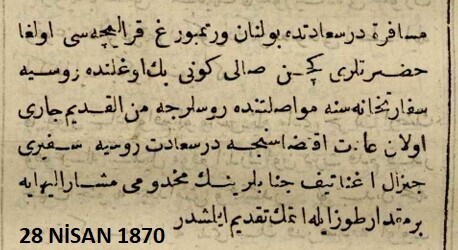 مسافرة درسعادتده بولنان ورتمبورغ قرالیچه سی اولغا
حضرتلری کچن صالی کونی بك اوغلنده روسیه
سفارتخانه سنه مواصلتنده روسلرجه من القدیم جاری
اولان عادت اقتضاسنجه درسعادت روسیه سفیری
جنرال اغناتیف جنابلرینك مخدومی مشارالیهایه
بر مقدار طوز ایله اتمك تقدیم ایلمشدر
28 NİSAN 1870